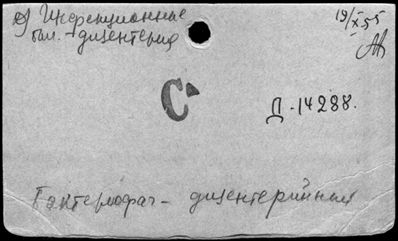 19/X 55
Инфекционные
бол. - дизентерия
С
Д-14288.
Бактериофаг - дизентерийный